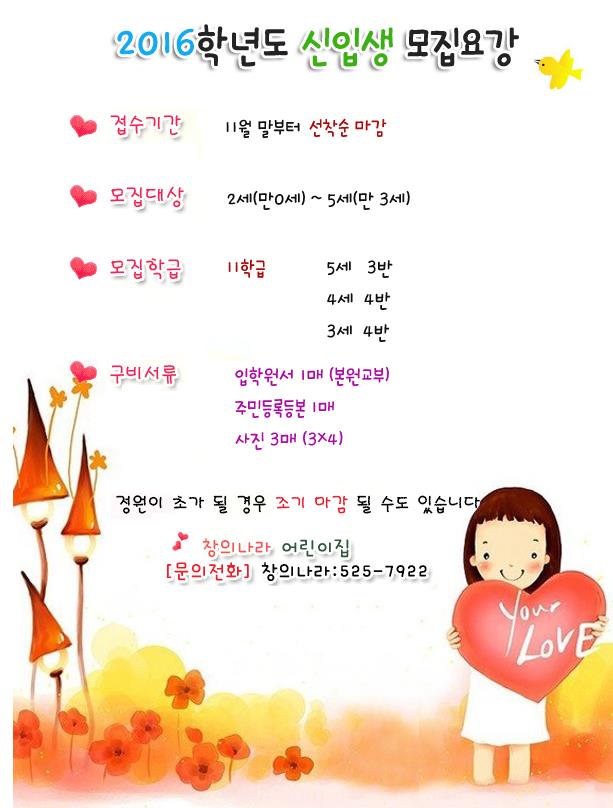 2016학년도 신입생 모집요강
접수기간 11월 말부터 선착순 마감
모집대상 2세(만0세) ~ 5세(만 3세)
모집학급 11학급 5세 3반
4세 4반
3세 4반
구비서류 입학원서 1매 (본원교부)
주민등록등본 1매
사진 3매 (3×4)
정원이 초가 될 경우 조기 마감 될 수도 있습니다
창의나라 어린이집
[문의전화] 창의나라:525-7922
Your
LOVE